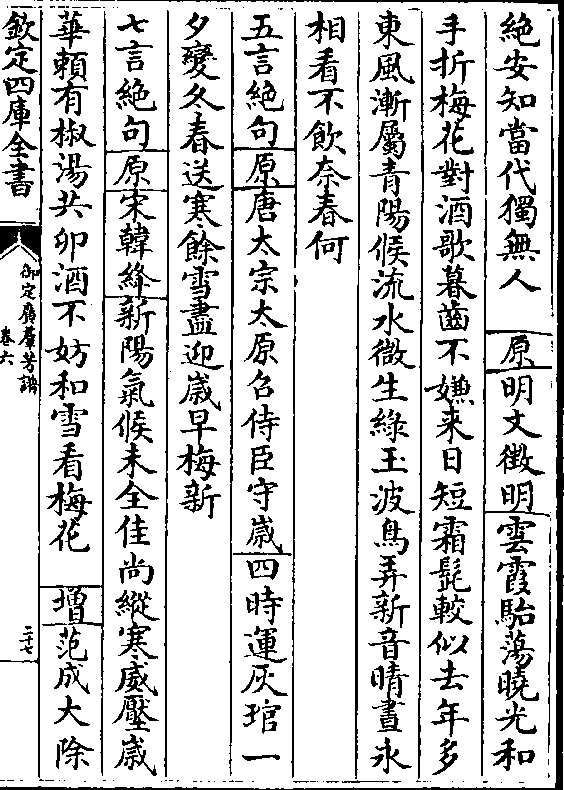 絶安知當代獨無人　原明文徵明雲霞駘蕩曉光和
手折梅花對酒歌暮齒不嫌来日短霜髭較似去年多
東風漸屬青陽候流水微生綠玉波鳥弄新音晴晝永
相看不飲奈春何
五言絶句原唐太宗太原召侍臣守嵗四時運灰琯一
夕變冬春送寒餘雪盡迎嵗早梅新
七言絶句原宋韓絳新陽氣候未全佳尚縱寒威壓嵗
華頼有椒湯共卯酒不妨和雪看梅花　增范成大除
欽定四庫全書
御定廣羣芳譜
卷六
二十七